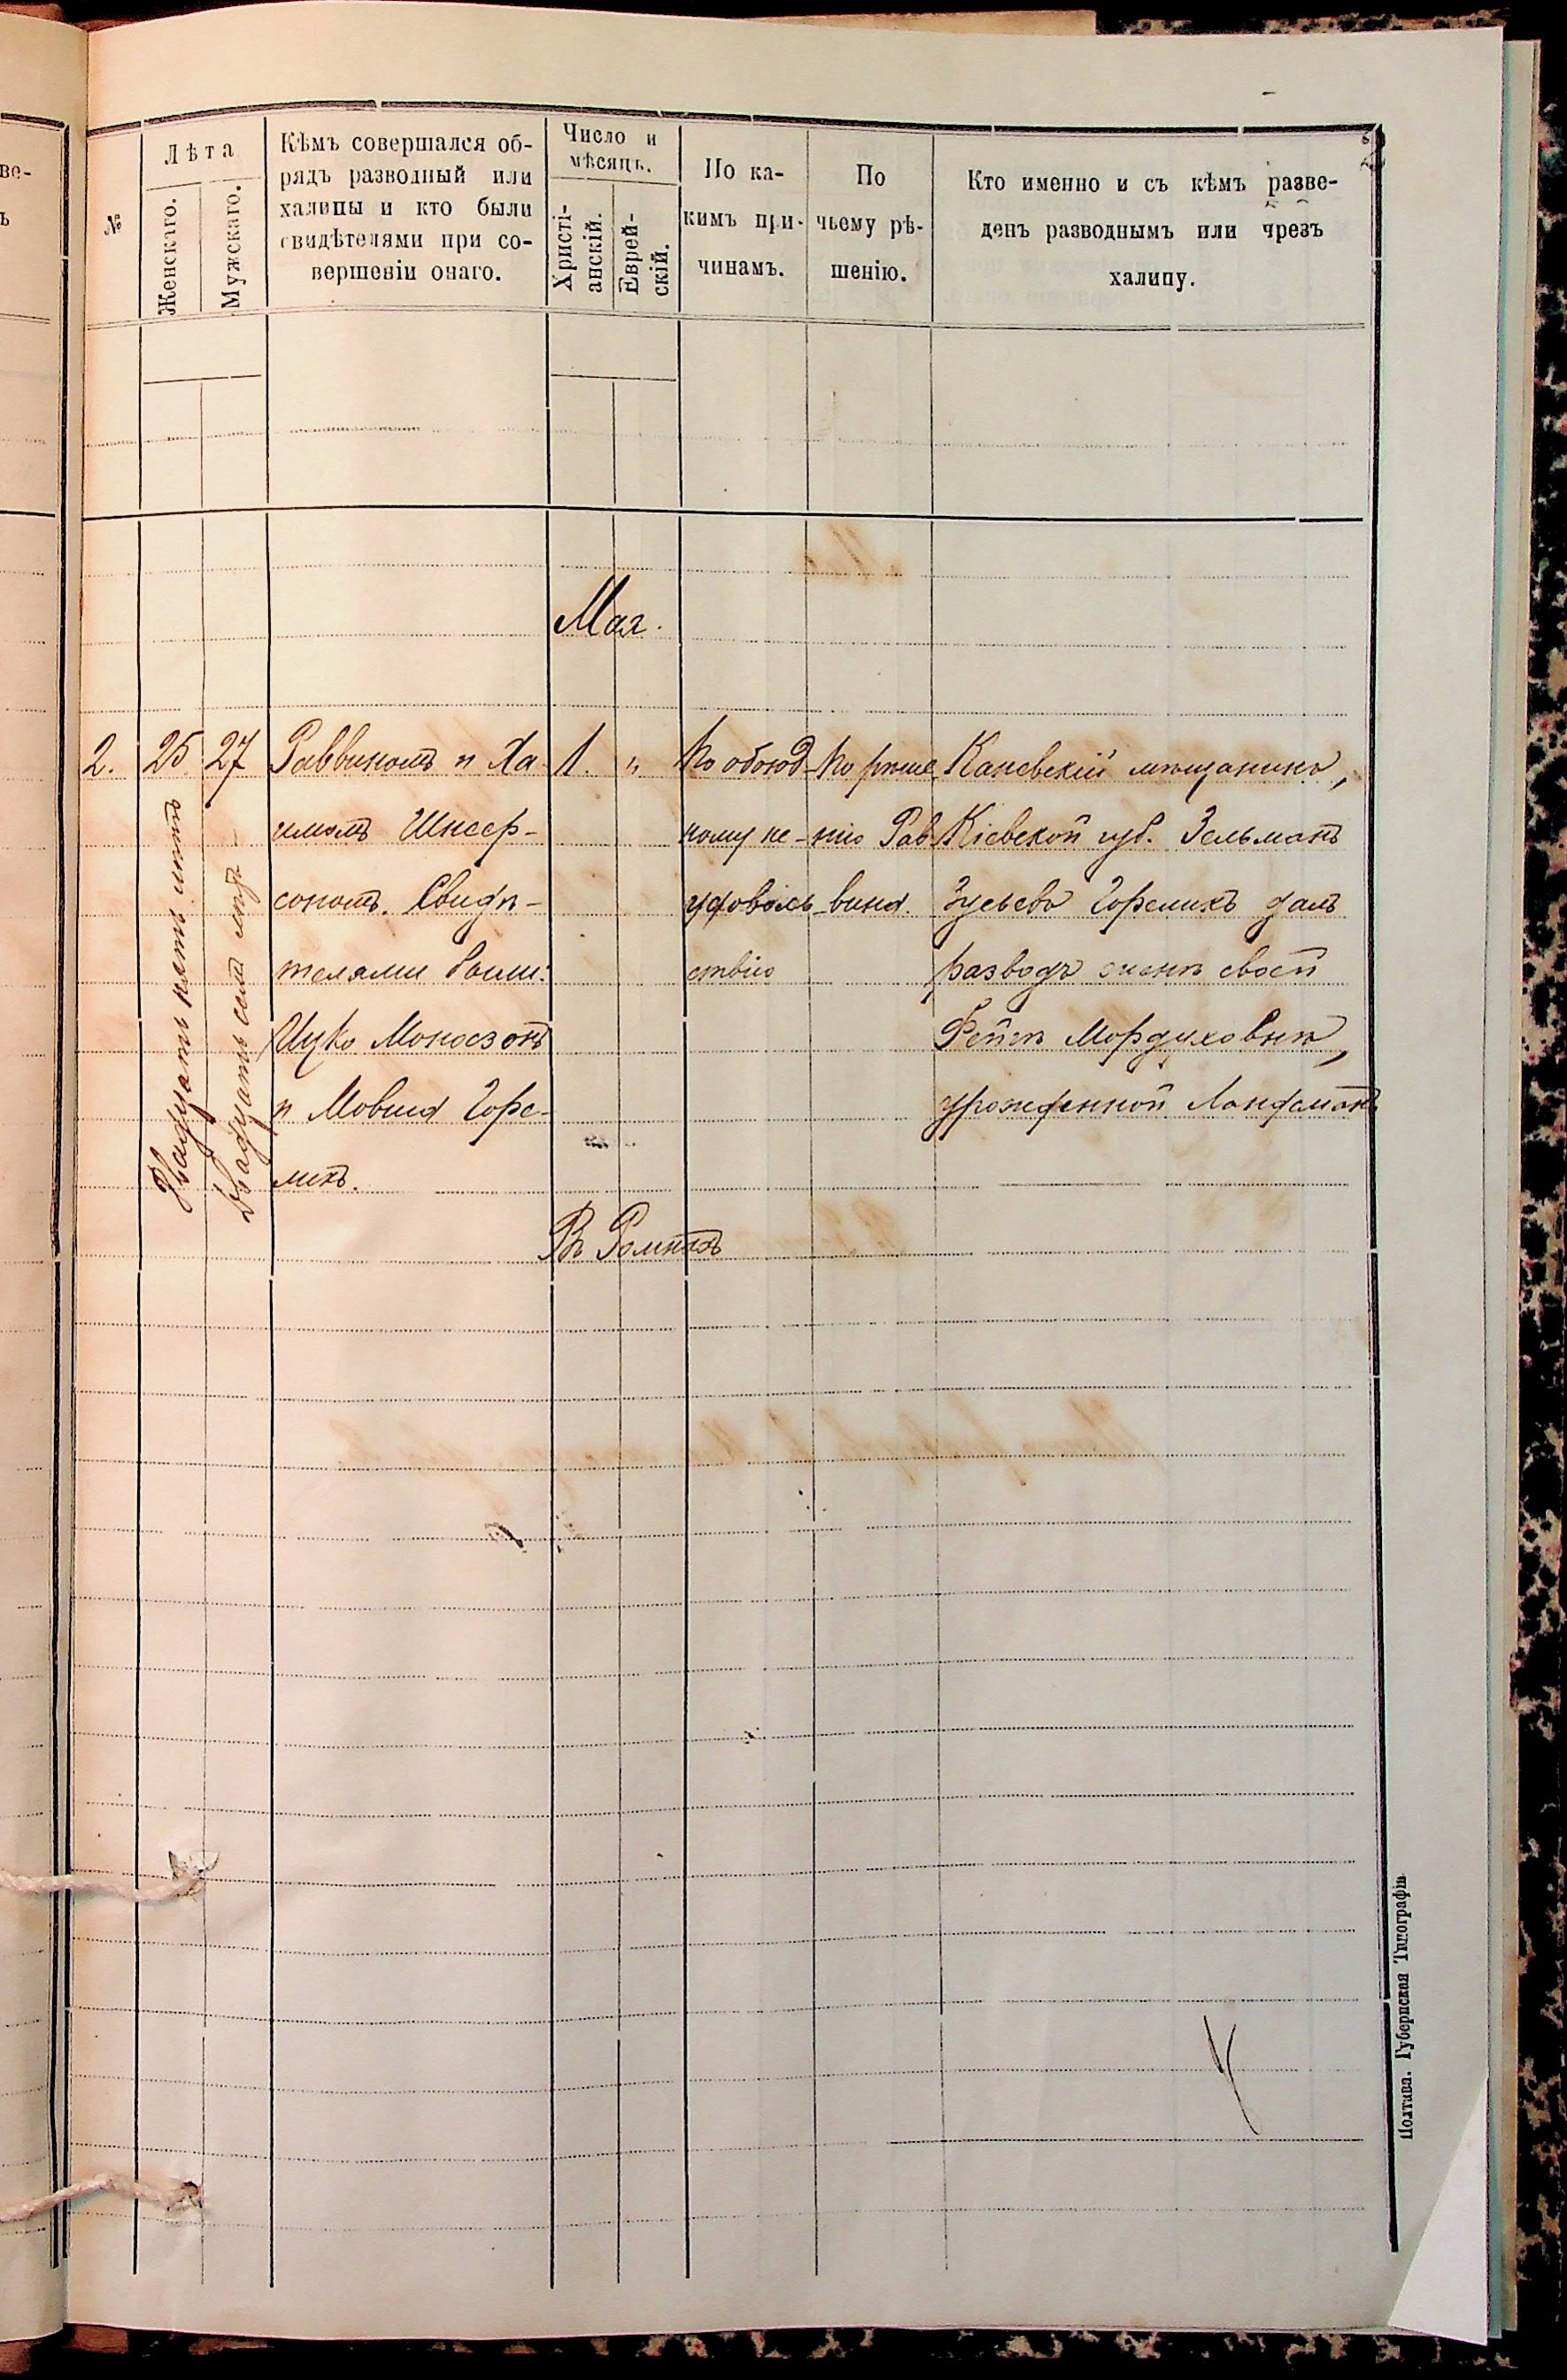 №
Лѣта
Женскаго.
Мужскаго.
Кѣмъ совершался об-
рядъ разводный или
халицы и кто были
свидѣтелями при со-
вершеніи онаго.
Число и
мѣсяцъ.
Христі-
анскій.
Еврей-
скій.
По ка-
кимъ при-
чинамъ.
По
чьему рѣ-
шенію.
Кто именно и съ кѣмъ разве-
денъ разводнымъ или чрезъ
халицу.
Мая.
2.
25
Двадцать пять лѣтъ
27
Двадцать семь лѣтъ
Раввиномъ п Ха
имомъ Шнеер-
сономъ. Свидѣ-
телями были:
Ицко Моносзонъ
и Мовша Горе-
ликъ.
1.
"
По обоюд-
ному не-
удоволь-
ствію
По рѣше
нію Рав
вина.
Каневскій мѣщанинъ,
Кіевской губ. Зельманъ
Зусевъ Гореликъ далъ
разводъ женѣ своей
Фейгѣ Мордуховнѣ,
урожденной Ландсманъ
Въ Ромнахъ
Полтава. Губернская Типографія